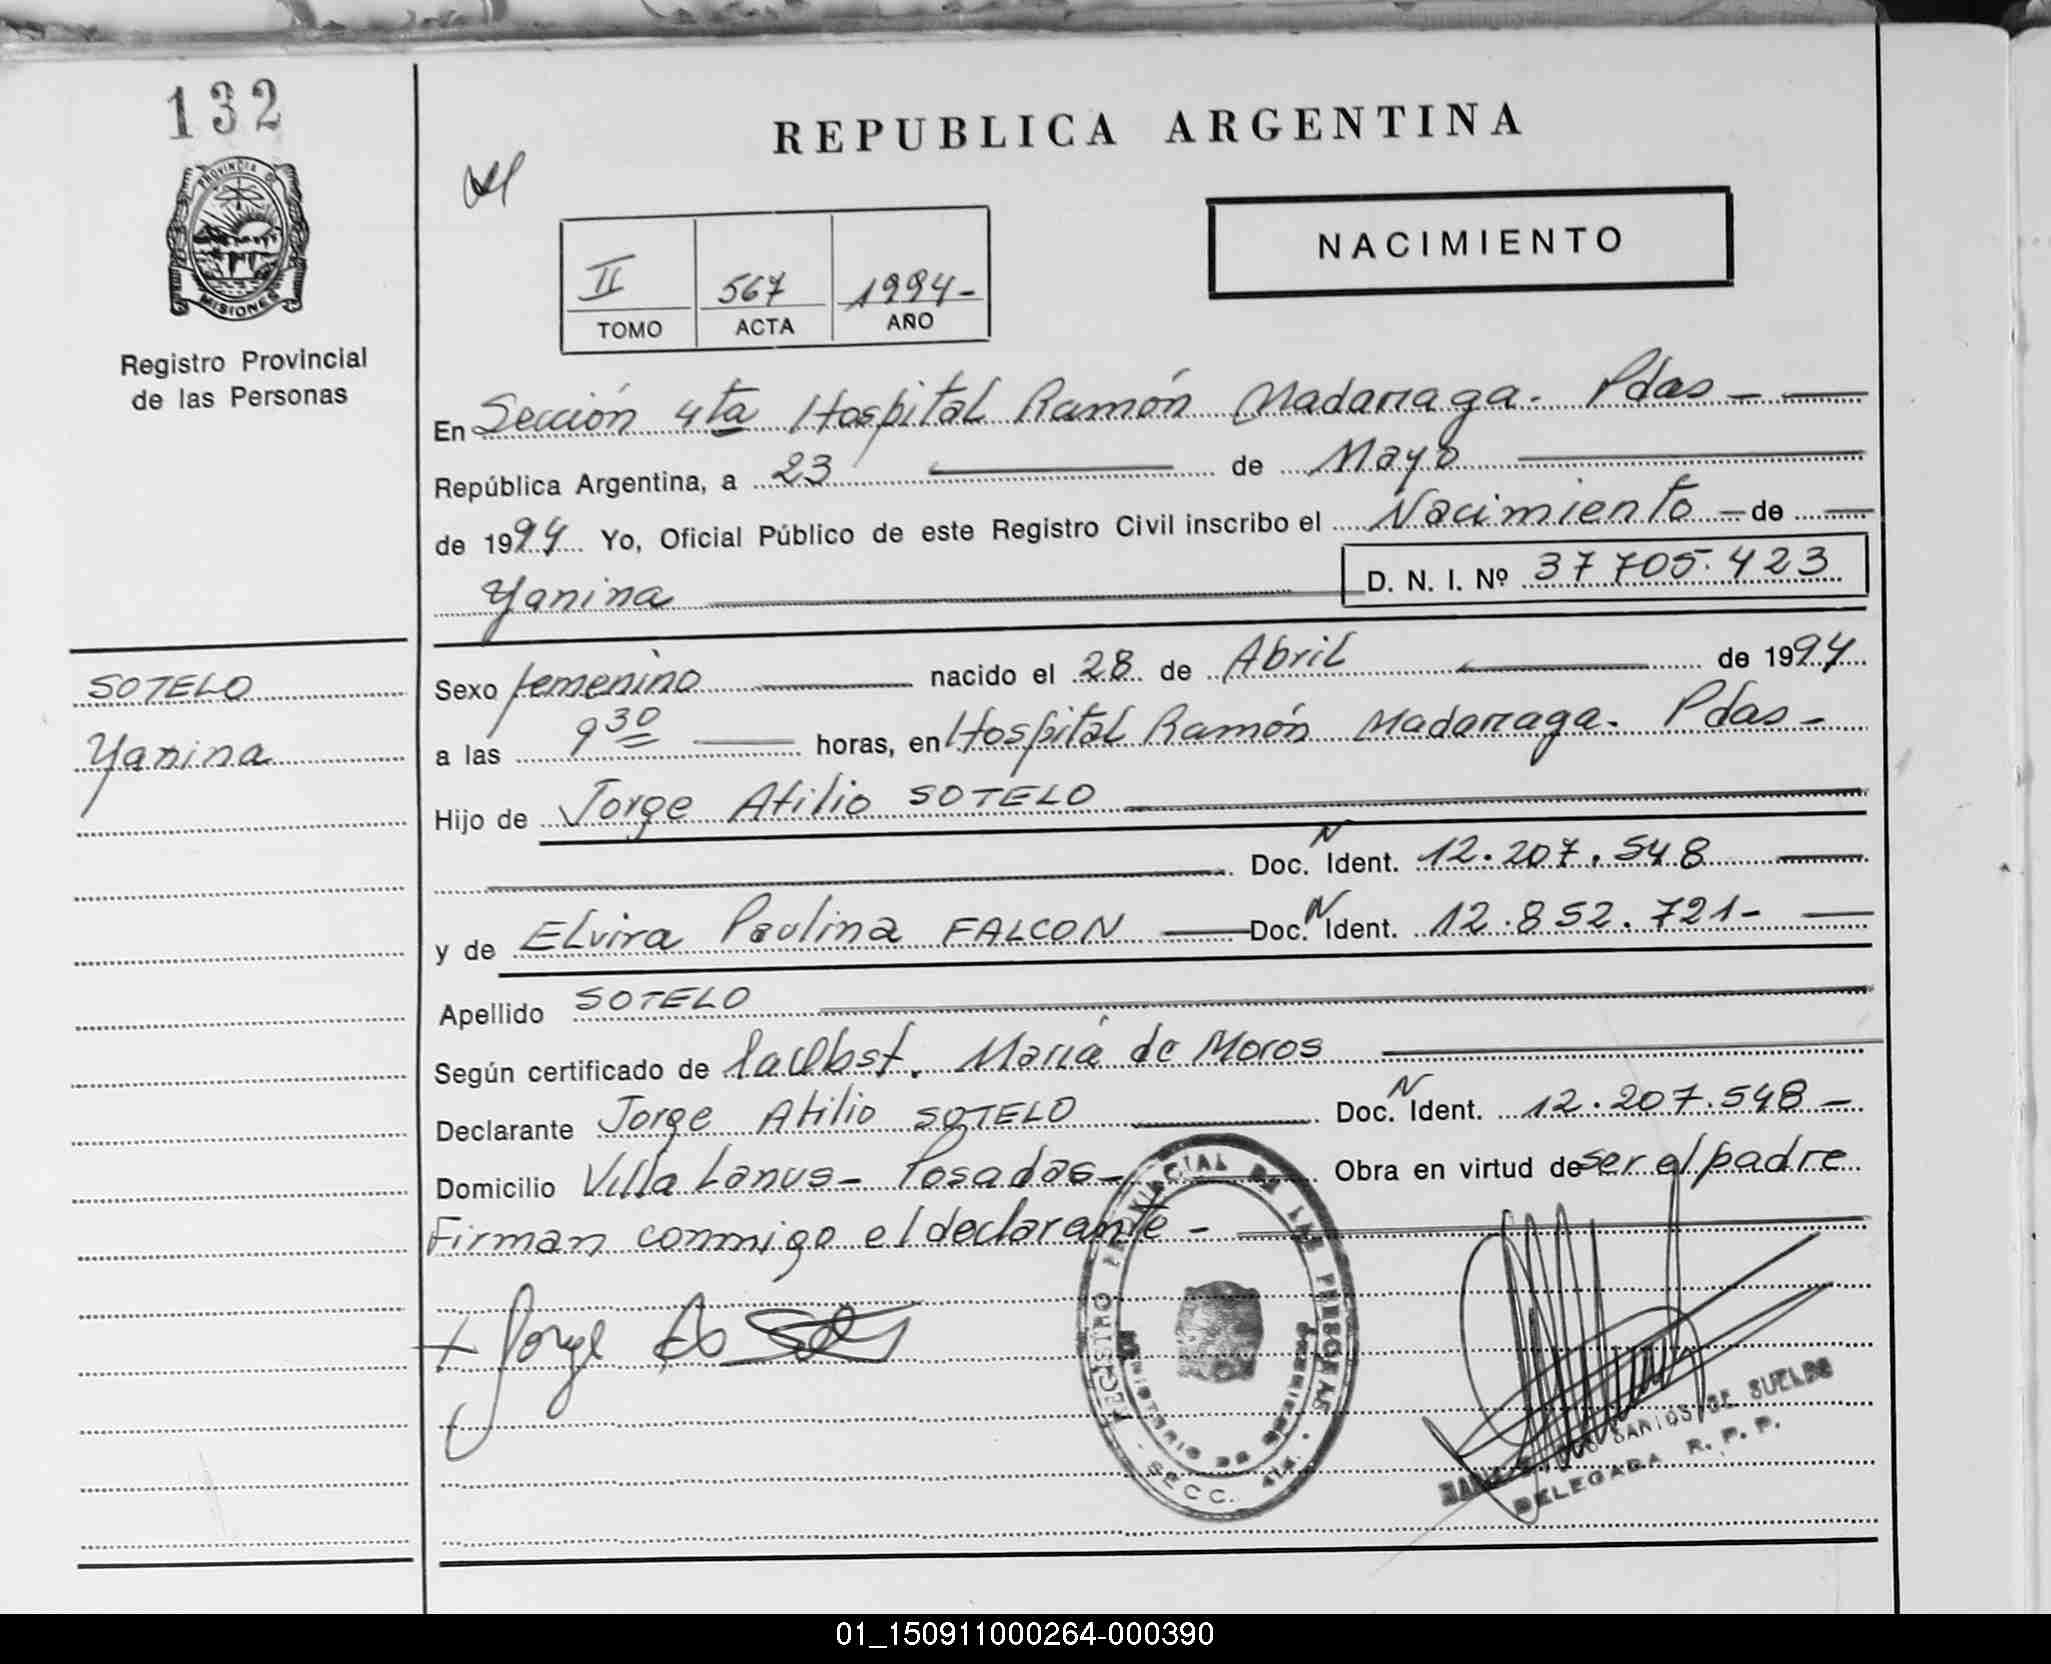 132
PROVINCIA DE
MISIONES
Registro Provincial
de las Personas
SOTELO
Yanina
REPUBLICA ARGENTINA
NACIMIENTO
II 567 1994-
TOMO ACTA AÑO
En Sección 4ta Hospital Ramón Madarraga. Pdas -
República Argentina, a 23 de Mayo
de 1994 Yo, Oficial Público de este Registro Civil inscribo el Nacimiento - de
Yanina D. N. I. Nº 37705.423
Sexo femenino nacido el 28 de Abril de 1994
a las 9 30 horas, en Hospital Ramón Madarraga. Pdas -
Hijo de Jorge Atilio SOTELO
Doc. N Ident. 12.207.548
y de Elvira Paulina FALCON Doc. N Ident. 12.852.721-
Apellido SOTELO
Según certificado de la Obst. María de Moros
Declarante Jorge Atilio SOTELO Doc. N Ident. 12.207.548 -
Domicilio Villa Lanus - Posadas - Obra en virtud de ser el padre
Firman conmigo el declarante -
+ Jorge
REGISTRO PROVINCIAL DE LAS PERSONAS
MINISTERIO DE GOBIERNO
SECC. 4ta.
SANTOS DE SUELDO
DELEGADA R. P. P.
01_150911000264-000390